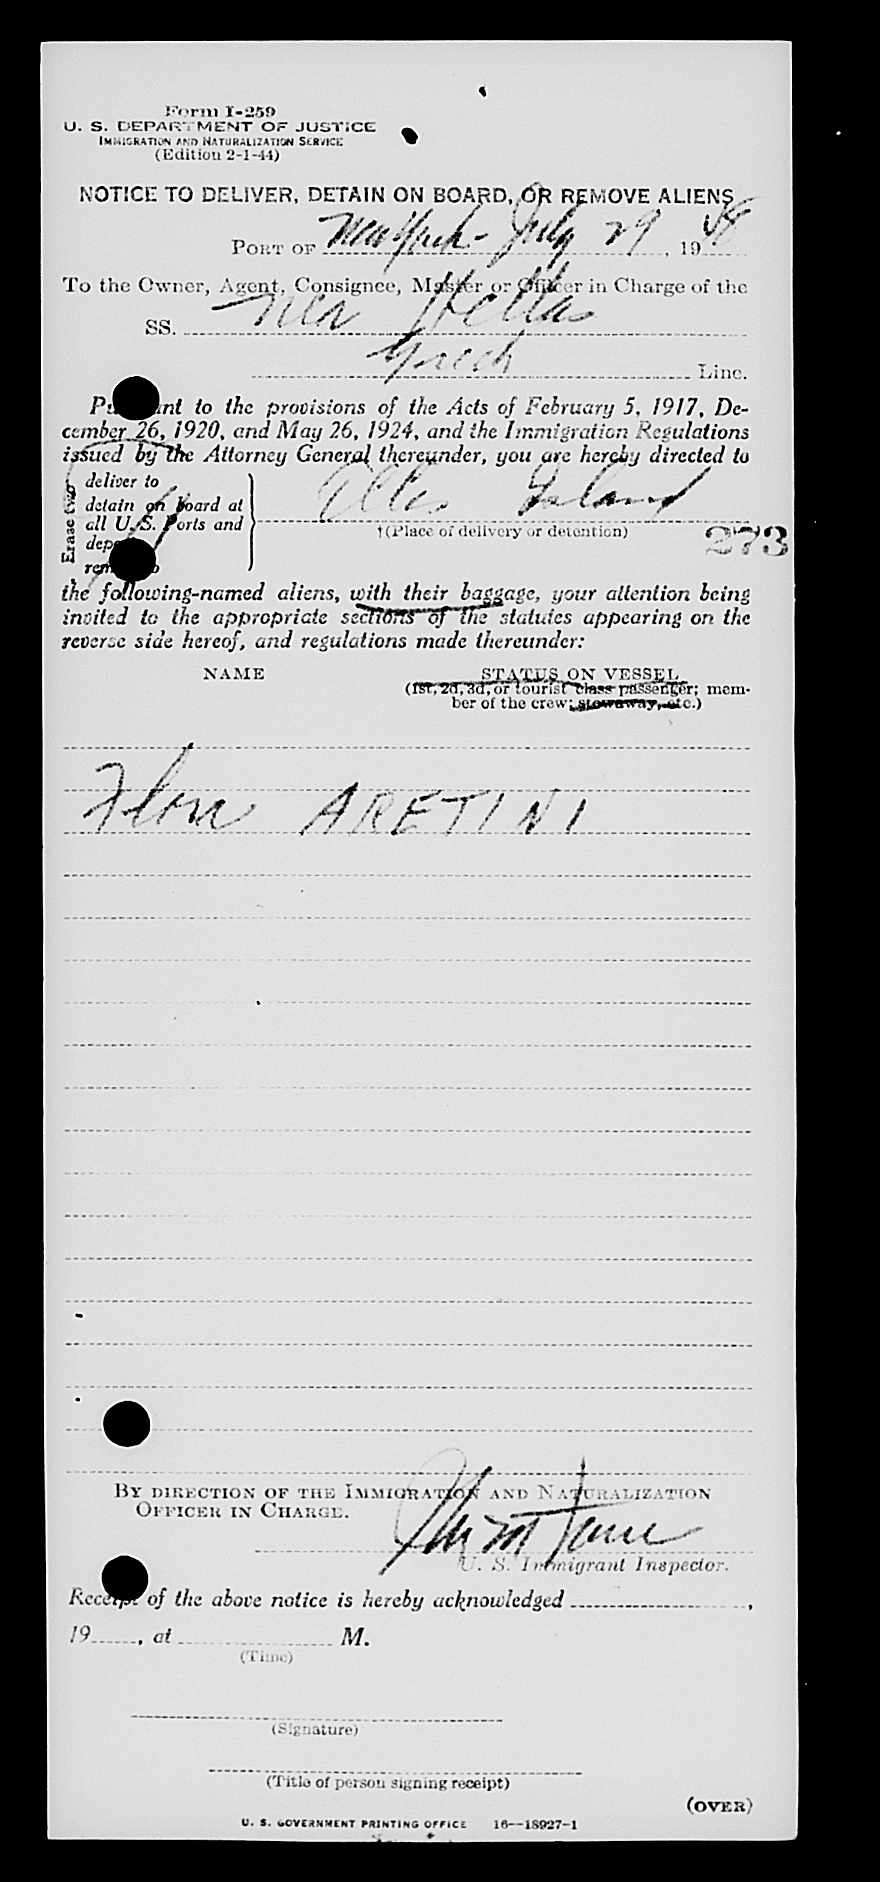 Form I-259
U. S. DEPARTMENT OF JUSTICE
IMMIGRATION AND NATURALIZATION SERVICE
(Edition 2-1-44)
NOTICE TO DELIVER, DETAIN ON BOARD, OR REMOVE ALIENS
PORT OF New York - July 29, 1948
To the Owner, Agent, Consignee, Master or Officer in Charge of the
SS. Nea Hellas
Greek Line.
Pursuant to the provisions of the Acts of February 5, 1917, De-
cember 26, 1920, and May 26, 1924, and the Immigration Regulations
issued by the Attorney General thereunder, you are hereby directed to
Erase two
deliver to
detain on board at
all U. S. Ports and
remove to
Ellis Island
†(Place of delivery or detention)
273
the following-named aliens, with their baggage, your attention being
invited to the appropriate sections of the statutes appearing on the
reverse side hereof, and regulations made thereunder:
NAME STATUS ON VESSEL
(1st, 2d, 3d, or tourist class passenger; mem-
ber of the crew; stowaway, etc.)
Flora ARETINI
BY DIRECTION OF THE IMMIGRATION AND NATURALIZATION
OFFICER IN CHARGE.
U. S. Immigrant Inspector.
Receipt of the above notice is hereby acknowledged ,
19 , at M.
(Time)
(Signature)
(Title of person signing receipt)
(OVER)
U. S. GOVERNMENT PRINTING OFFICE 16—18927-1